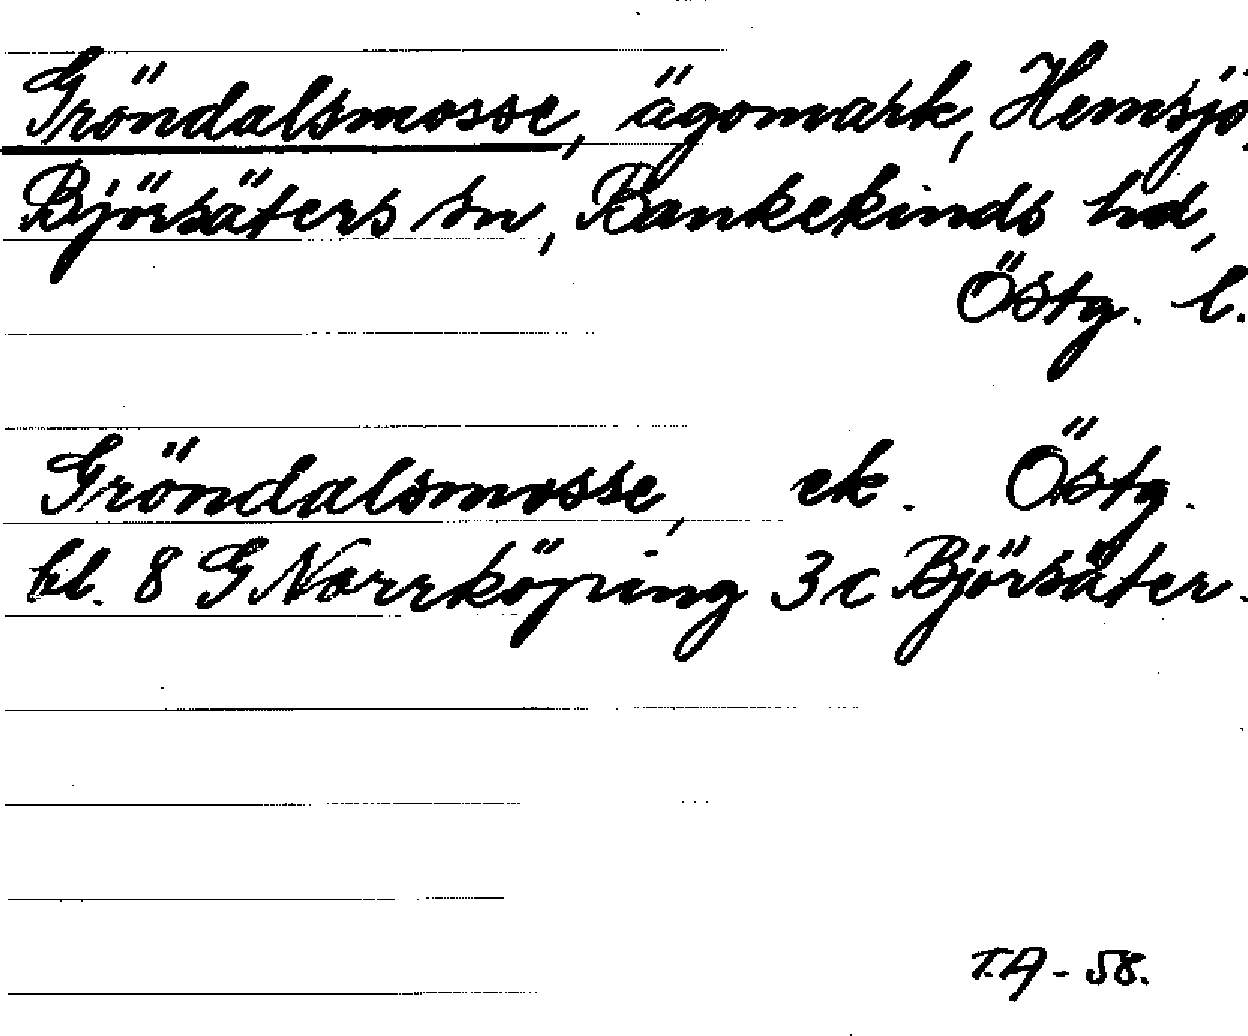 Gröndalsmosse, ägomark, Hemsjö,
Björsäters sn, Bankekinds hd,
Östg. l.
Gröndalsmosse, ek. Östg.
bl. 8 G Norrköping 3c Björsäter.
T.A - 58.